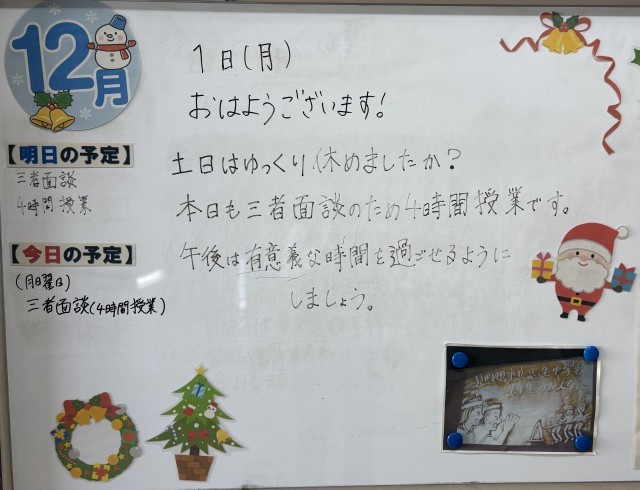 12月
1日(月)
おはようございます!
【明日の予定】
三者面談
4時間授業
【今日の予定】
(月曜日)
三者面談(4時間授業)
土日はゆっくり休めましたか?
本日も三者面談のため4時間授業です。
午後は有意義な時間を過ごせるように
しましょう。